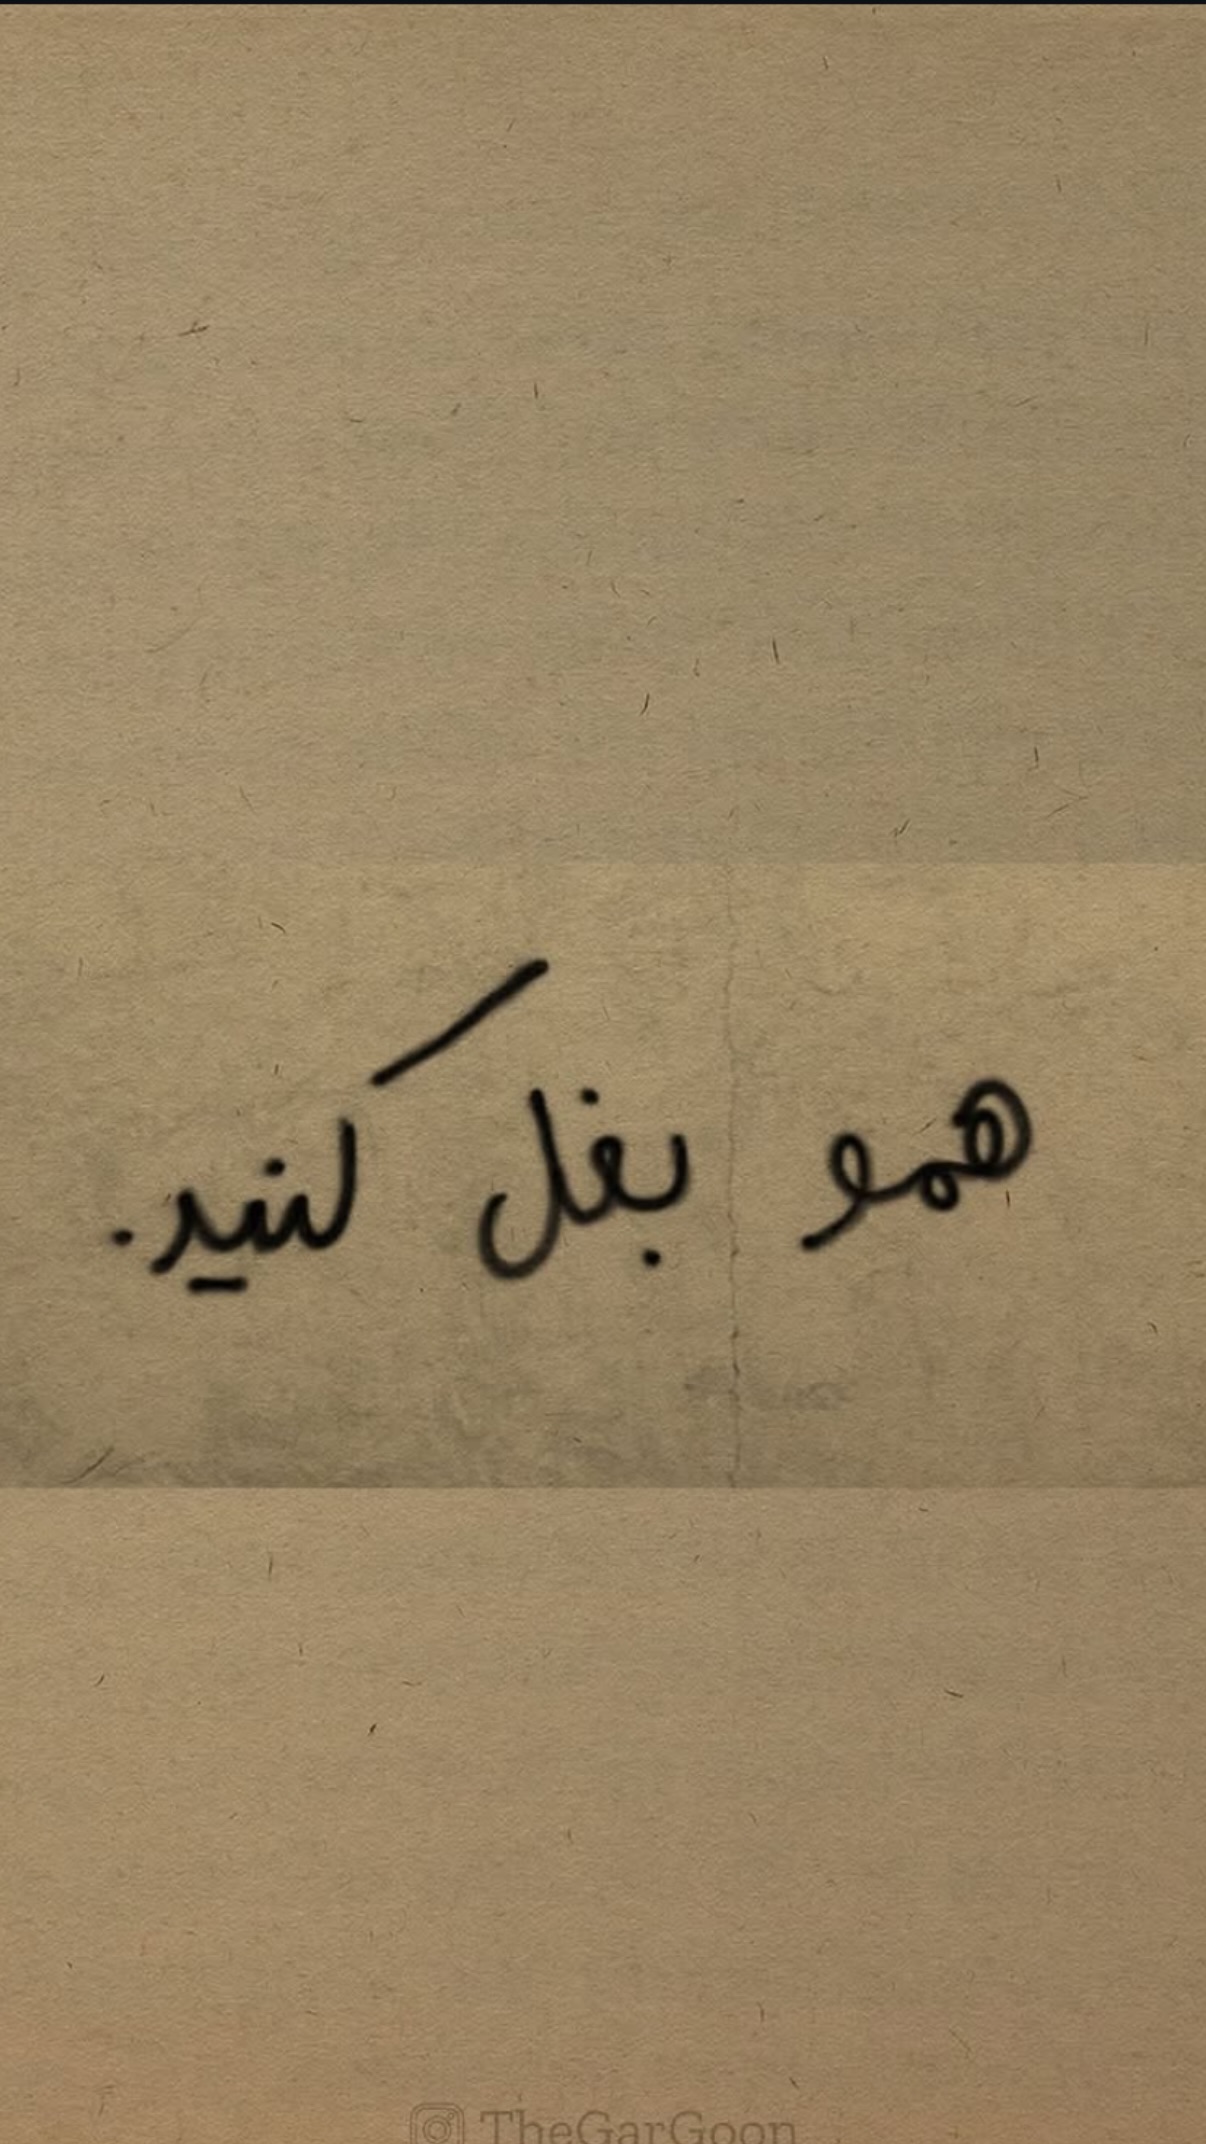 همو بغل کنید.
TheGarGoon